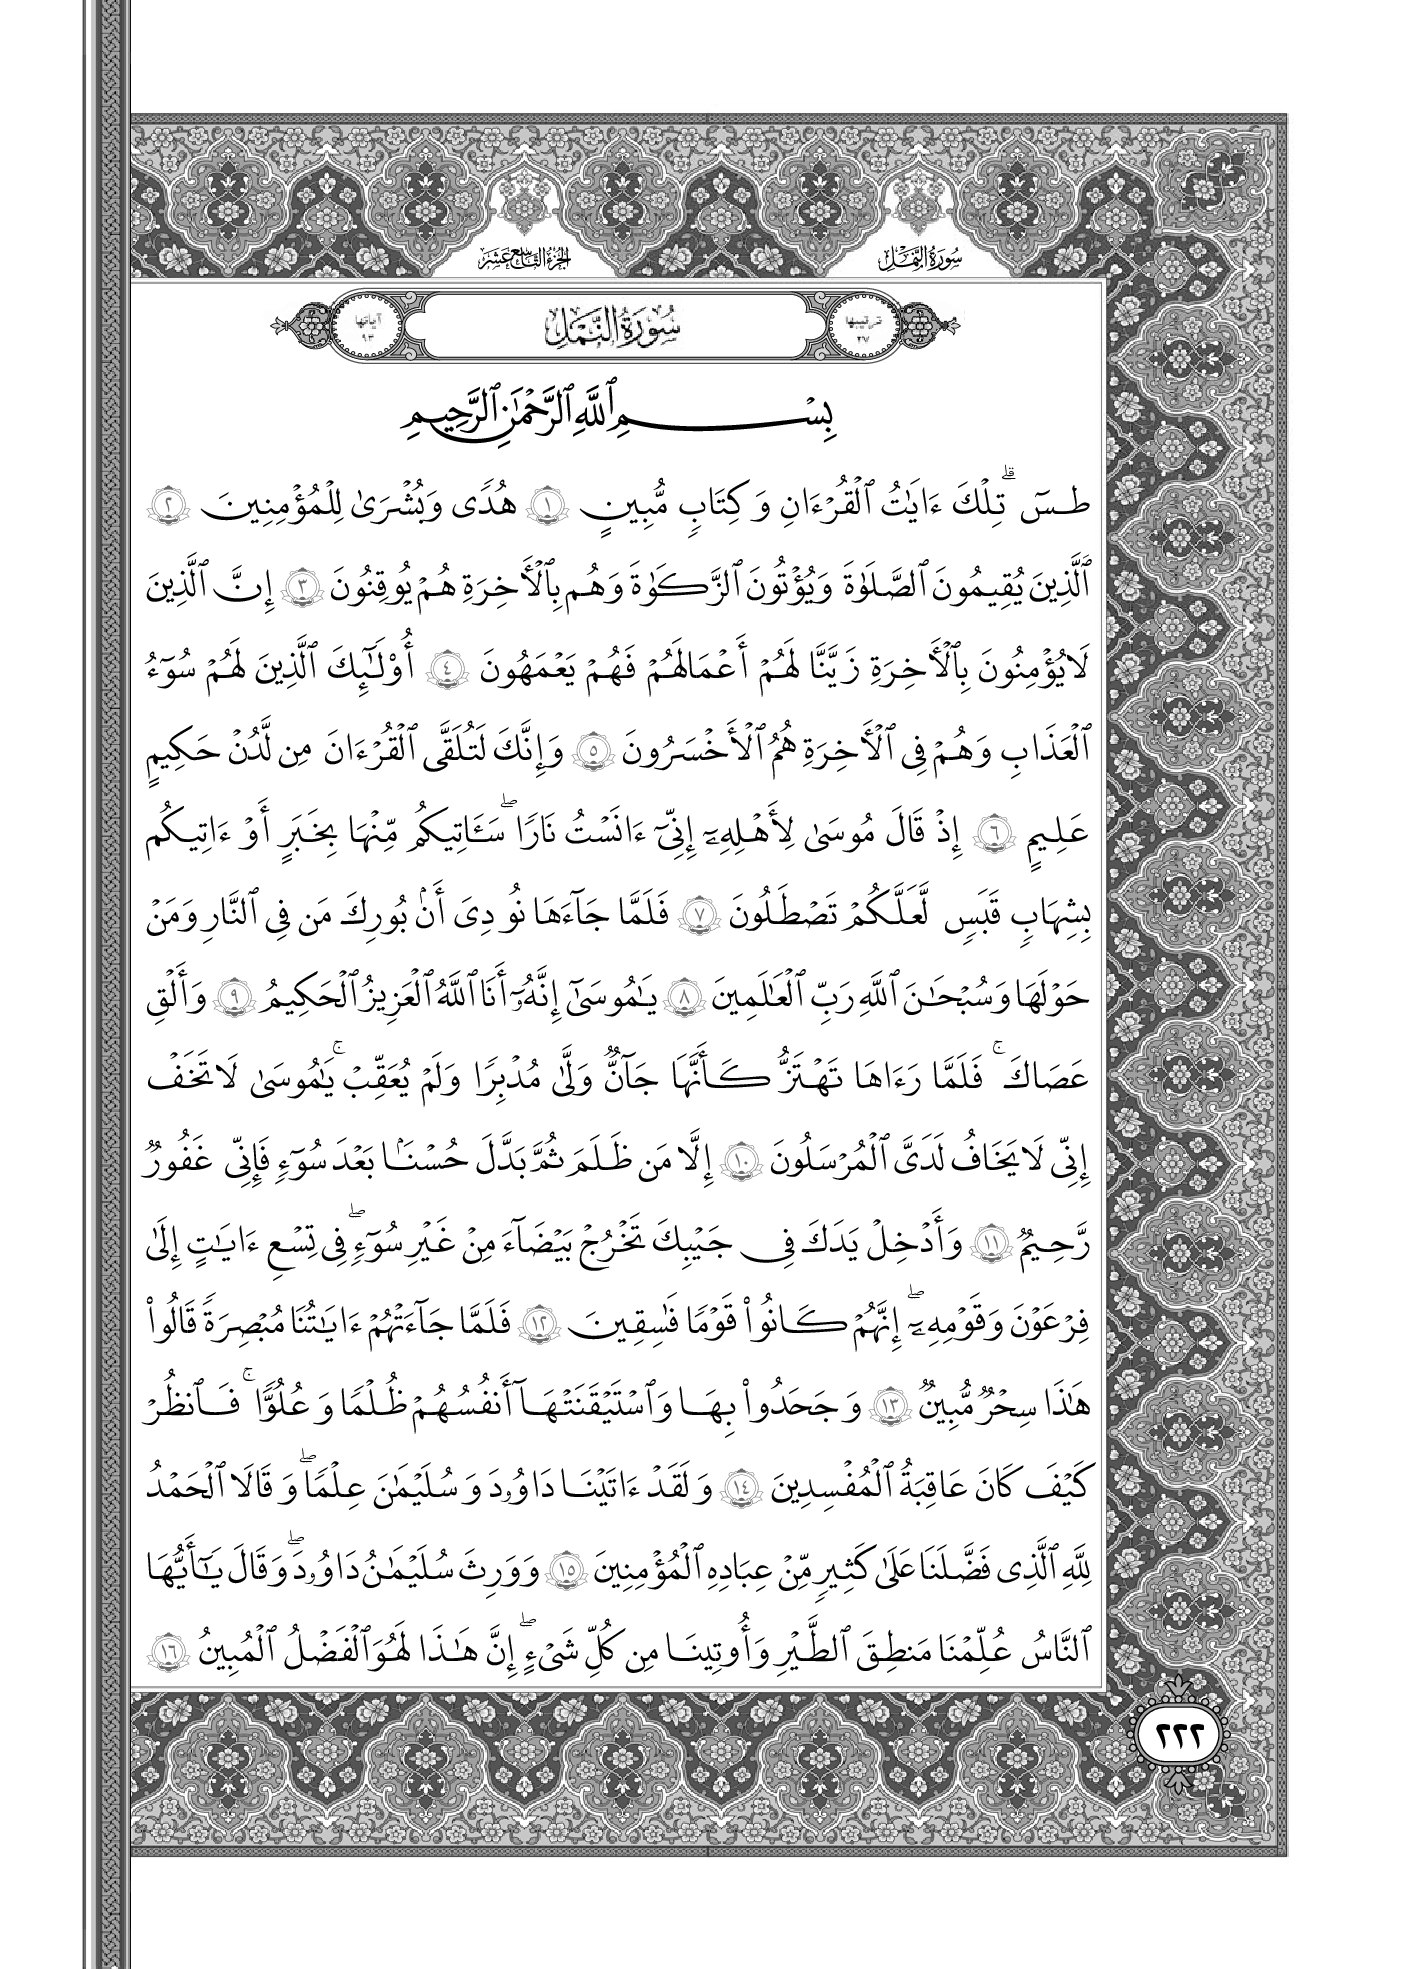 سُورَةُ النَّمْلِ
الجُزْءُ التَّاسِعُ عَشَرَ
ترتيبها
٢٧
سُورَةُ النَّمْلِ
آياتها
٩٣
بِسْمِ ٱللَّهِ ٱلرَّحْمَٰنِ ٱلرَّحِيمِ
طسٓ ۚ تِلْكَ ءَايَٰتُ ٱلْقُرْءَانِ وَكِتَابٍ مُّبِينٍ ١ هُدًى وَبُشْرَىٰ لِلْمُؤْمِنِينَ ٢
ٱلَّذِينَ يُقِيمُونَ ٱلصَّلَوٰةَ وَيُؤْتُونَ ٱلزَّكَوٰةَ وَهُم بِٱلْأَخِرَةِ هُمْ يُوقِنُونَ ٣ إِنَّ ٱلَّذِينَ
لَا يُؤْمِنُونَ بِٱلْأَخِرَةِ زَيَّنَّا لَهُمْ أَعْمَالَهُمْ فَهُمْ يَعْمَهُونَ ٤ أُوْلَٰٓئِكَ ٱلَّذِينَ لَهُمْ سُوٓءُ
ٱلْعَذَابِ وَهُمْ فِى ٱلْأَخِرَةِ هُمُ ٱلْأَخْسَرُونَ ٥ وَإِنَّكَ لَتُلَقَّى ٱلْقُرْءَانَ مِن لَّدُنْ حَكِيمٍ
عَلِيمٍ ٦ إِذْ قَالَ مُوسَىٰ لِأَهْلِهِۦٓ إِنِّىٓ ءَانَسْتُ نَارًا ۖ سَـَٔاتِيكُم مِّنْهَا بِخَبَرٍ أَوْ ءَاتِيكُم
بِشِهَابٍ قَبَسٍ لَّعَلَّكُمْ تَصْطَلُونَ ٧ فَلَمَّا جَآءَهَا نُودِىَ أَنۢ بُورِكَ مَن فِى ٱلنَّارِ وَمَنْ
حَوْلَهَا وَسُبْحَٰنَ ٱللَّهِ رَبِّ ٱلْعَٰلَمِينَ ٨ يَٰمُوسَىٰٓ إِنَّهُۥٓ أَنَا ٱللَّهُ ٱلْعَزِيزُ ٱلْحَكِيمُ ٩ وَأَلْقِ
عَصَاكَ ۚ فَلَمَّا رَءَاهَا تَهْتَزُّ كَأَنَّهَا جَآنٌّ وَلَّىٰ مُدْبِرًا وَلَمْ يُعَقِّبْ ۚ يَٰمُوسَىٰ لَا تَخَفْ
إِنِّى لَا يَخَافُ لَدَىَّ ٱلْمُرْسَلُونَ ١٠ إِلَّا مَن ظَلَمَ ثُمَّ بَدَّلَ حُسْنَۢا بَعْدَ سُوٓءٍ فَإِنِّى غَفُورٌ
رَّحِيمٌ ١١ وَأَدْخِلْ يَدَكَ فِى جَيْبِكَ تَخْرُجْ بَيْضَآءَ مِنْ غَيْرِ سُوٓءٍ ۖ فِى تِسْعِ ءَايَٰتٍ إِلَىٰ
فِرْعَوْنَ وَقَوْمِهِۦٓ ۖ إِنَّهُمْ كَانُوا۟ قَوْمًا فَٰسِقِينَ ١٢ فَلَمَّا جَآءَتْهُمْ ءَايَٰتُنَا مُبْصِرَةً قَالُوا۟
هَٰذَا سِحْرٌ مُّبِينٌ ١٣ وَجَحَدُوا۟ بِهَا وَٱسْتَيْقَنَتْهَآ أَنفُسُهُمْ ظُلْمًا وَعُلُوًّا ۚ فَٱنظُرْ
كَيْفَ كَانَ عَاقِبَةُ ٱلْمُفْسِدِينَ ١٤ وَلَقَدْ ءَاتَيْنَا دَاوُۥدَ وَسُلَيْمَٰنَ عِلْمًا ۖ وَقَالَا ٱلْحَمْدُ
لِلَّهِ ٱلَّذِى فَضَّلَنَا عَلَىٰ كَثِيرٍ مِّنْ عِبَادِهِ ٱلْمُؤْمِنِينَ ١٥ وَوَرِثَ سُلَيْمَٰنُ دَاوُۥدَ ۖ وَقَالَ يَٰٓأَيُّهَا
ٱلنَّاسُ عُلِّمْنَا مَنطِقَ ٱلطَّيْرِ وَأُوتِينَا مِن كُلِّ شَىْءٍ ۖ إِنَّ هَٰذَا لَهُوَ ٱلْفَضْلُ ٱلْمُبِينُ ١٦
٢٢٢